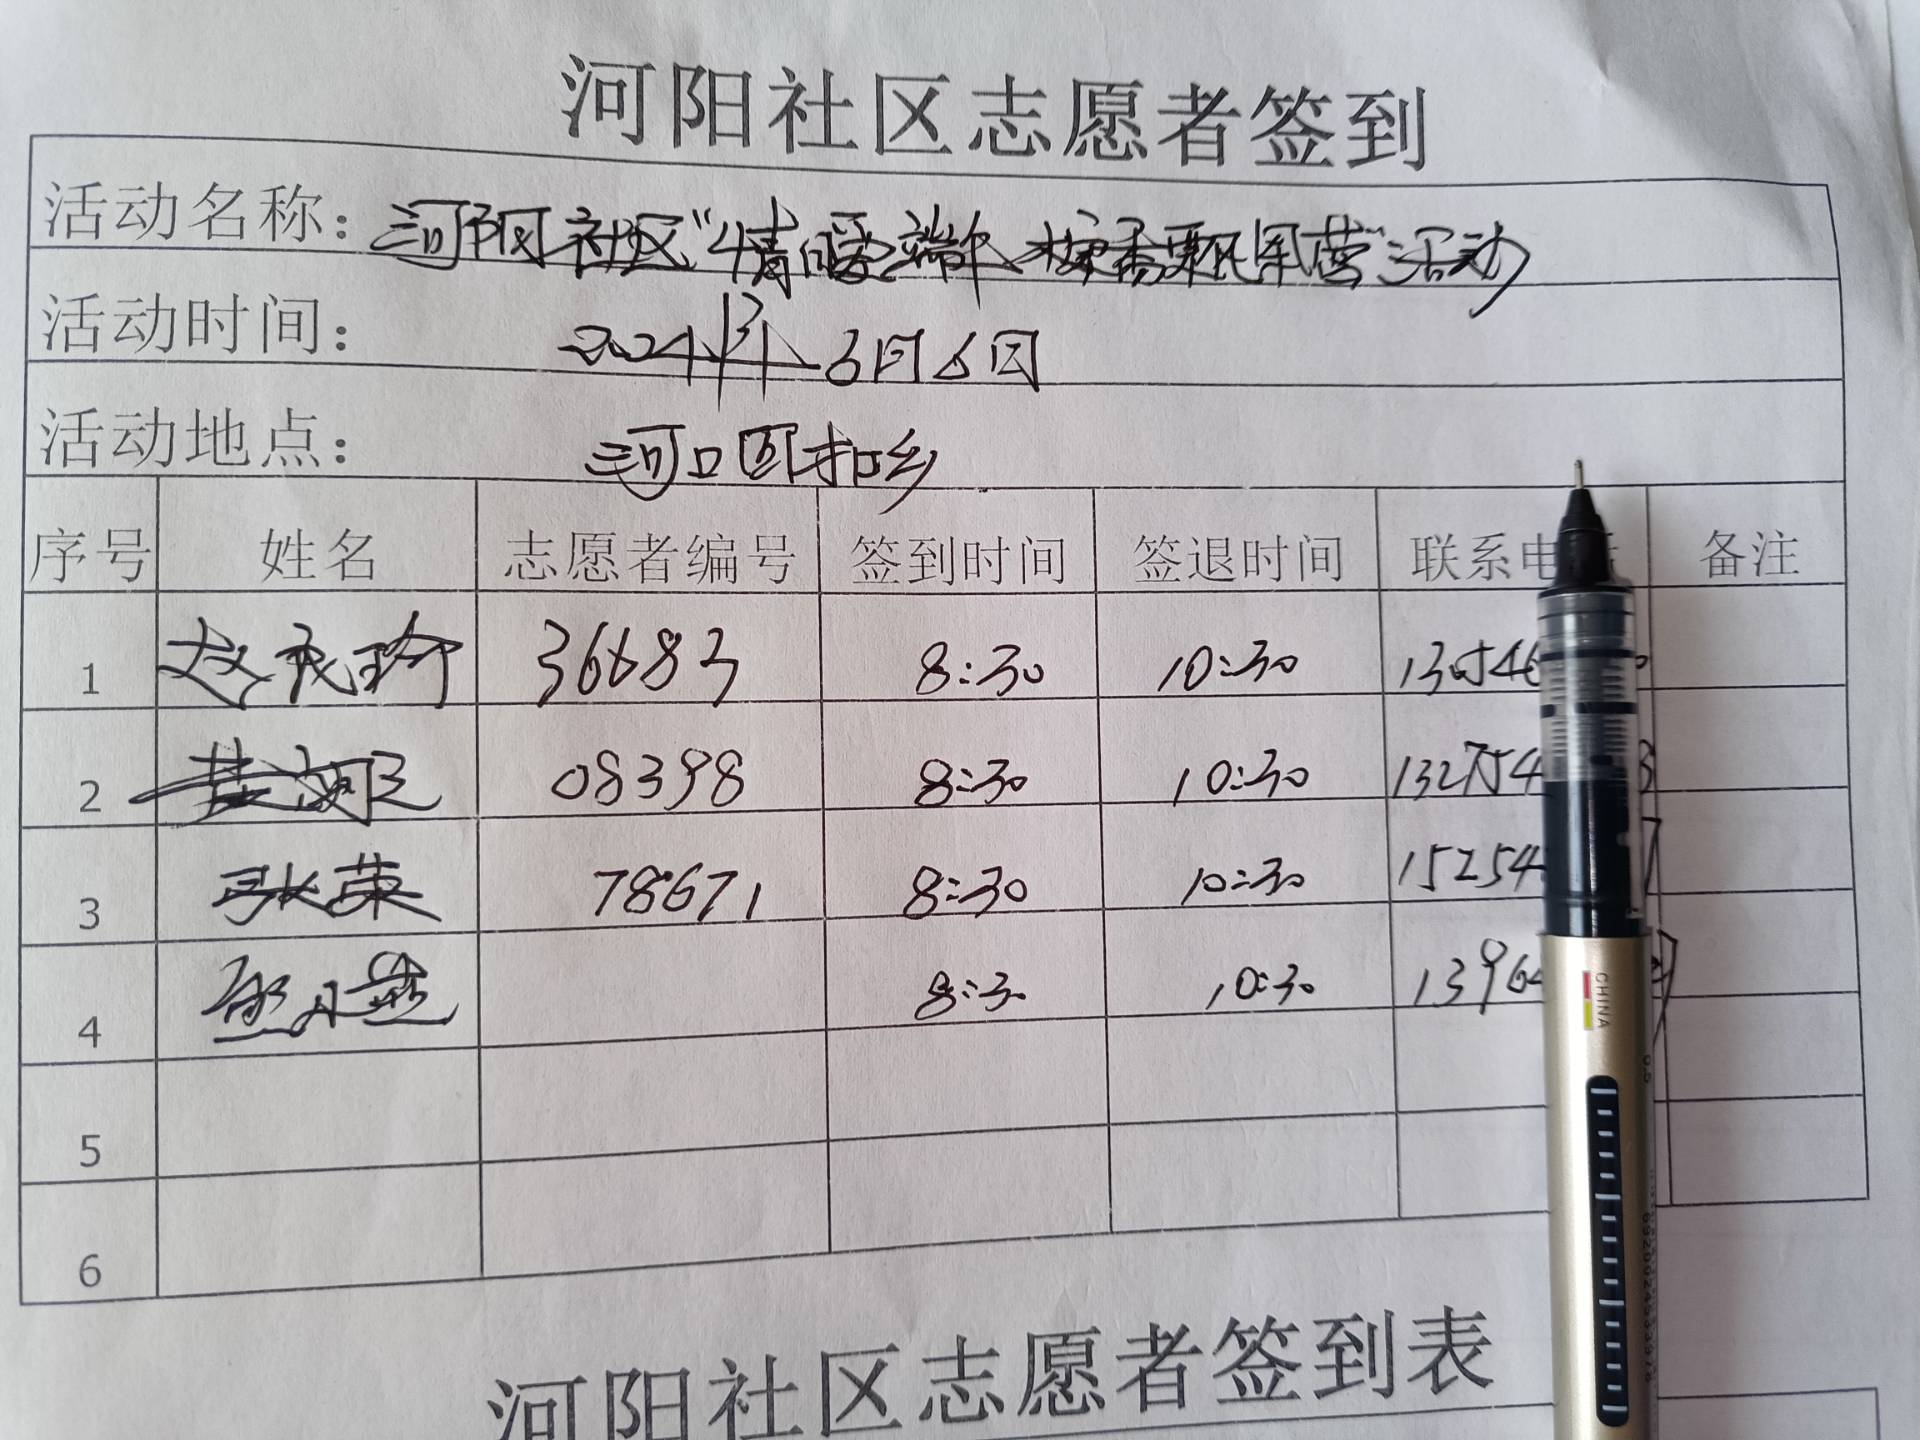 河阳社区志愿者签到
活动名称： 河阳社区“情暖端午 粽香飘军营”活动
活动时间： 2024年6月6日
活动地点： 河口
序号 姓名 志愿者编号 签到时间 签退时间 联系电 备注
1 赵 36683 8:30 10:30 130546
2 08398 8:30 10:30 132754
3 张荣 78671 8:30 10:30 15254
4 8:30 10:30 1396
5
6
河阳社区志愿者签到表
CHINA